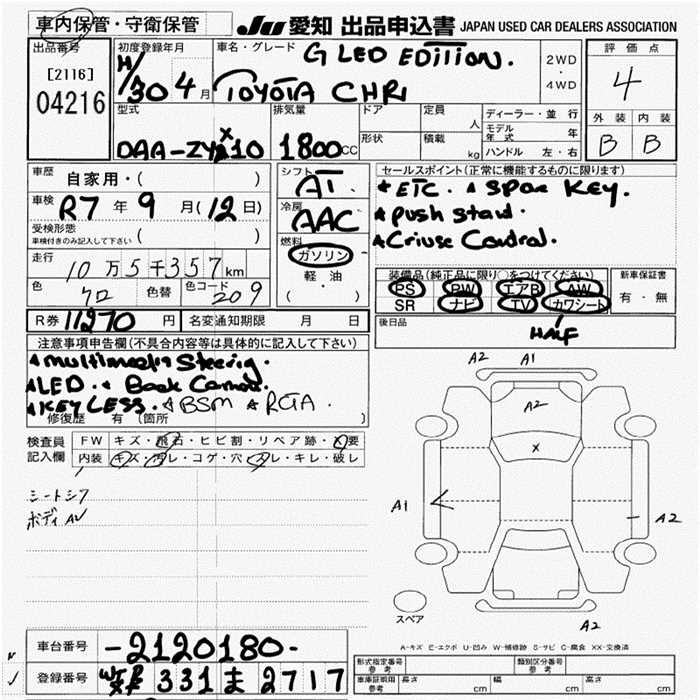 車内保管・守衛保管
JU 愛知 出品申込書 JAPAN USED CAR DEALERS ASSOCIATION
出品番号
[2116]
04216
初度登録年月
H/30 4月
車名・グレード
G LED EDITION.
TOYOTA CHR
2WD
・
4WD
評価点
4
外装 内装
B B
型式
DAA-ZYX10
排気量
1800cc
ドア
形状
定員 人
積載 kg
ディーラー・並行
モデル年式 年
ハンドル 左・右
車歴
自家用・( )
車検
R7年9月(12日)
受検形態
車検付きのみ記入して下さい ( )
走行
10万5千357km
色 クロ 色替 色コード 209
R券 11270円 名変通知期限 月 日
シフト
AT
冷房
AAC
燃料
ガソリン
軽・油
( )
セールスポイント(正常に機能するものに限ります)
★ ETC. ★ Spare Key.
★ Push Start.
★ Criuse Control.
装備品(純正品に限り○をつけてください)
PS PW エアB AW
SR ナビ TV カワシート
HALF
新車保証書
有・無
後日品
注意事項申告欄(不具合内容等は具体的に記入して下さい)
★ Multimedia Steering.
★ LED. ★ Back Camera.
★ KEYLESS. ★ BSM ★ RCTA.
修復歴 有(箇所 )
検査員記入欄
FW キズ・飛石・ヒビ割・リペア跡・X要
内装 キズ・汚レ・コゲ・穴・スレ・キレ・破レ
シートシワ
A2 A1
A2
X
A1
A2
A2
スペア
A-キズ E-エクボ U-凹み W-補修跡 S-サビ C-腐食 XX-交換済
車台番号 -2120180-
登録番号 331 ま 2717
形式指定番号 参考
類別区分番号 参考
車庫証明用 参考 長さ cm 幅 cm 高さ cm